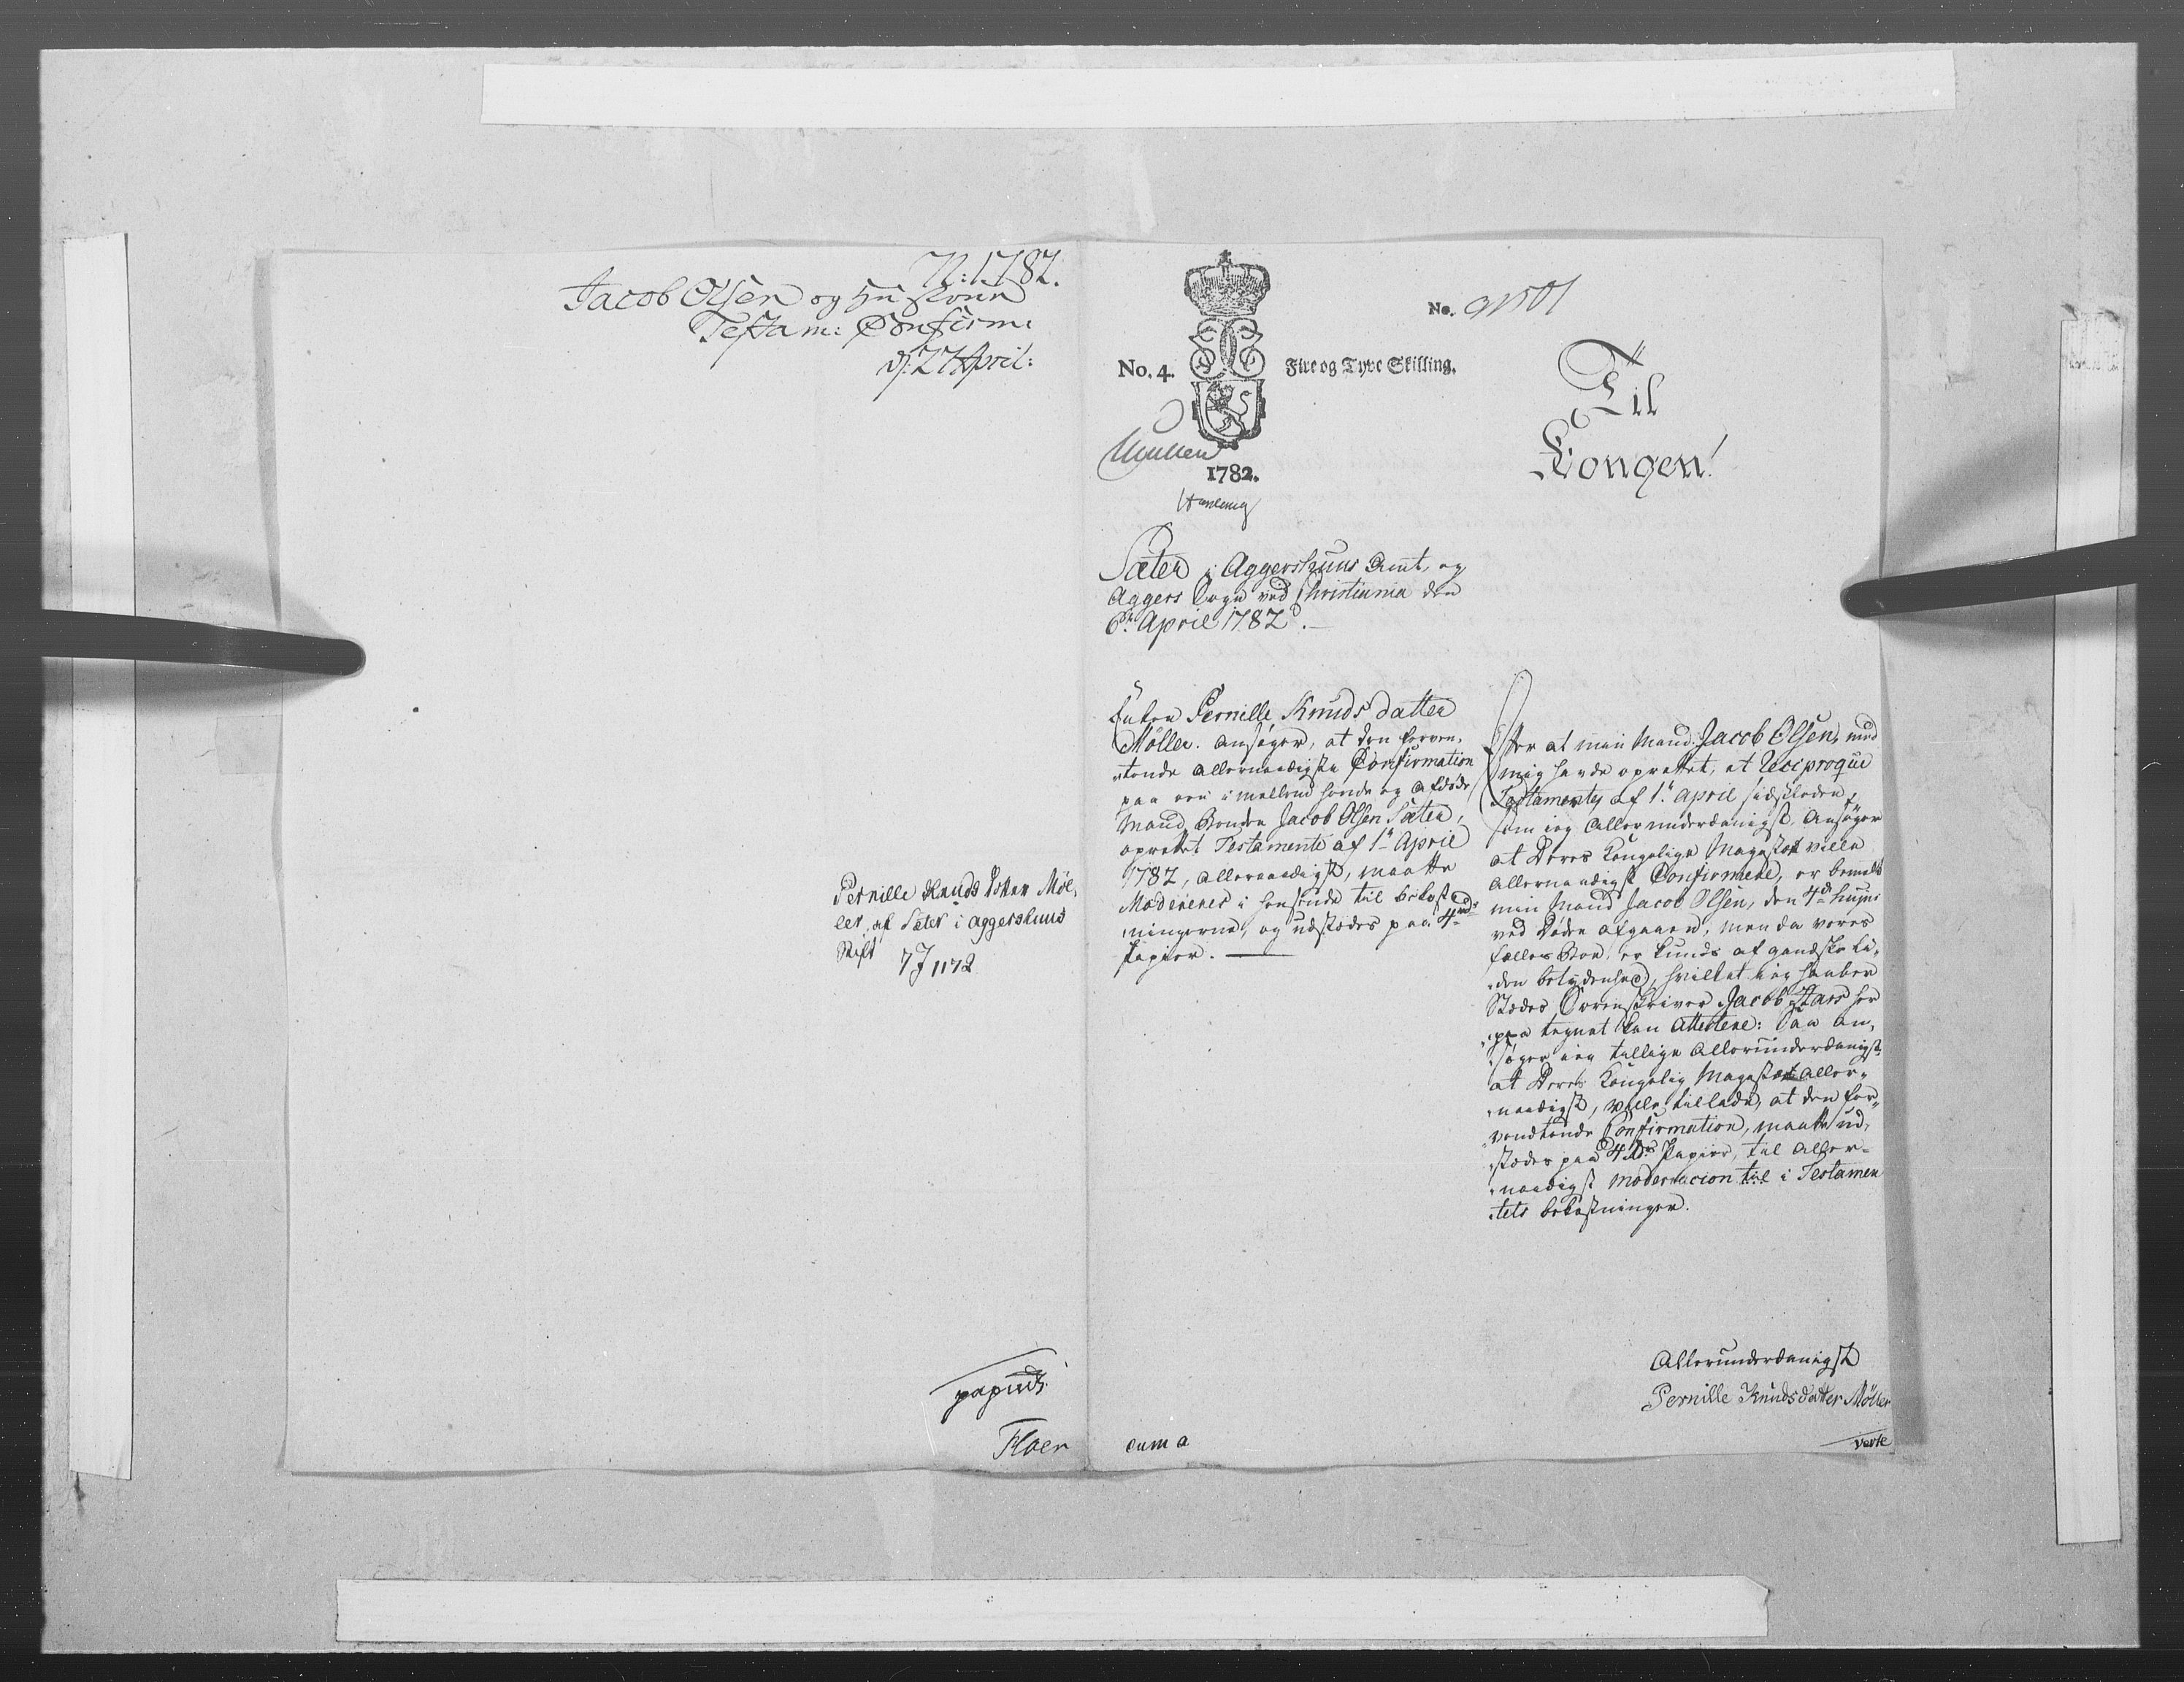 N: 1782.
Jacob Olsen og Hustrues
Testam: Confirm:
d: 27 April:
Pernille Knuds dotter Möl,
ler, af Sæter i Aggershuus
Stift
7 J 1172
Floer
No. 4.
Fire og Tyve Skilling.
1782.
No. 91501
Til
Kongen!
Sæter i Aggershuus Amt, og
Aggers Sogn ved Christiania den
6te April 1782.
Enken Pernille Knudsdatter
Möller. Ansøger, at den forven,
tende allernaadigste Confirmation
paa een imellem hende og afdøde
Mand, Bonden Jacob Olsen Sæter,
oprettet Testamente af 1te April
1782, allernaadigst, maatte
Modereres i henseende til bekost
ningerne, og udstædes paa 4
Papiir.
Efter at min Mand Jacob Olsen, med
mig havde oprettet, et Reciproque
Testamente af 1te April sidstleden,
som jeg allerunderdanigst Ansøger
at Deres Kongelige Mayestæt ville
allernaadigst Confirmere, er bemelte
min Mand Jacob Olsen, den 4de hujus
ved Døden afgaaen, men da vores
fælles Boe, er kuns af gandske li,
den betydenhed, hvilket jeg haaber
Stædets Sorenskriver Jacob her
paa tegnet kan Attestere: Saa an,
søger jeg tillige Allerunderdanigst
at Deres Kongelig Mayestæt aller,
naadigst, ville tillade, at den for,
ventende Confirmation, maatte ud,
stædes paa 4 Papiir, til aller,
naadigst moderacion til i Testamen
tets bekostninger.
Allerunderdanigst
Pernille Knudsdatter Möller
cum a
verte